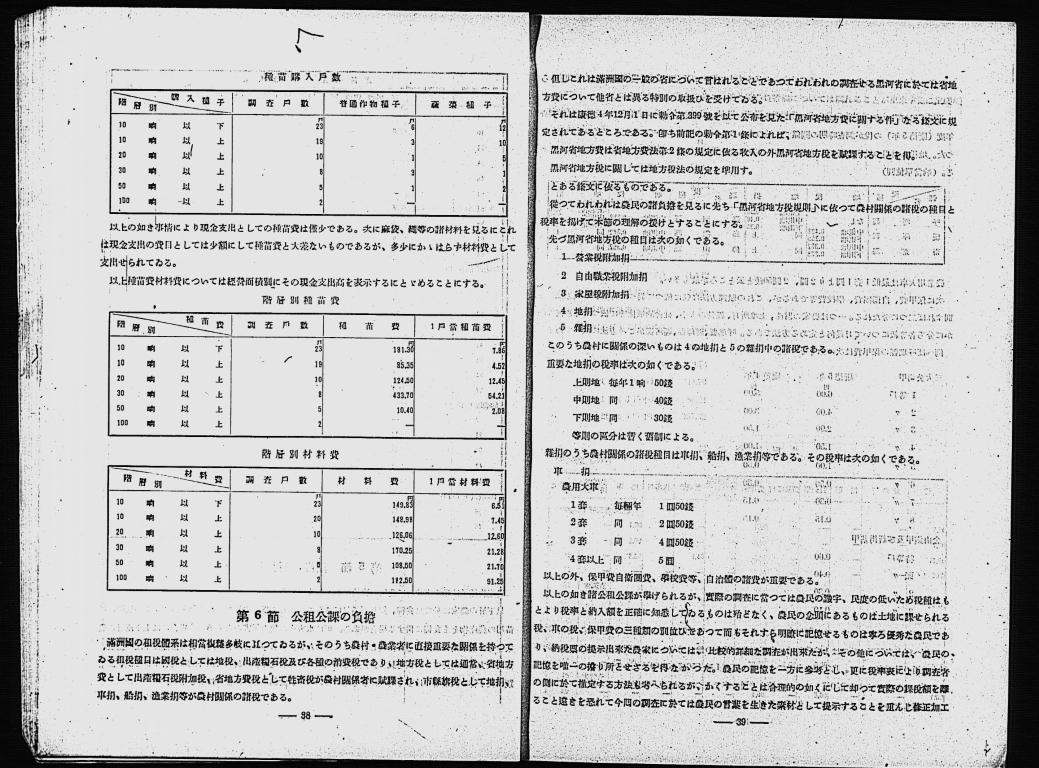 種苗購入戶數
階層別 購入種子 調查戶數 普通作物種子 蔬菜種子
10 晌以下 23 6 12
10 晌以上 19 3 10
20 晌以上 10 1 5
30 晌以上 8 3 1
50 晌以上 5 1 2
100 晌以上 2 — —
以上の如き事情により現金支出としての種苗費は僅少である。次に麻袋、繩等の諸材料を見るにこれ
は現金支出の費目としては少額にして種苗費と大差ないものであるが、多少にかゝはらず材料費として
支出せられてゐる。
以上種苗費材料費については經營面積別にその現金支出高を表示するにとゞめることにする。
階層別種苗費
階層別 種苗費 調查戶數 種苗費 1戶當種苗費
10 晌以下 23 181.30 7.88
10 晌以上 19 85.35 4.52
20 晌以上 10 124.50 12.45
30 晌以上 8 433.70 54.21
50 晌以上 5 10.40 2.08
100 晌以上 2 — —
階層別材料費
階層別 材料費 調查戶數 材料費 1戶當材料費
10 晌以下 23 149.83 6.51
10 晌以上 20 148.98 7.45
20 晌以上 10 126.06 12.60
30 晌以上 8 170.25 21.28
50 晌以上 5 108.50 21.70
100 晌以上 2 182.50 91.25
第6節 公租公課の負擔
滿洲國の租稅體系は相當複雜多岐に亘つてゐるが、そのうち農村・農業者に直接重要な關係を持つて
ゐる租稅種目は國稅としては地稅、出產糧石稅及び各種の消費稅であり、地方稅としては通常、省地方
費として出產糧石稅附加稅、省地方費稅として牲畜稅が農村關係者に賦課され、市縣旗稅として地捐、
車捐、船捐、漁業捐等が農村關係の諸稅である。
— 38 —
但しこれは滿洲國の一般の省について言はれることであつてわれわれの調查せる黑河省に於ては省地
方費について他省とは異る特別の取扱ひを受けてゐる。
それは康德4年12月1日に勅令第399號を以て公布を見た「黑河省地方費に關する件」なる條文に規
定されてあるところである。卽ち前記の勅令第1條によれば、
黑河省地方費は省地方費法第2條の規定に依る收入の外黑河省地方稅を賦課することを得。
黑河省地方稅に關しては地方稅法の規定を準用す。
とある條文に依るものである。
從つてわれわれは農民の諸負擔を見るに先ち「黑河省地方稅規則」に依つて農村關係の諸稅の種目と
稅率を揭げて本節の理解の援けとすることにする。
先づ黑河省地方稅の種目は次の如くである。
1 營業稅附加捐
2 自由職業稅附加捐
3 家屋稅附加捐
4 地捐
5 雜捐
このうち農村に關係の深いものは4の地捐と5の雜捐中の諸稅である。
重要な地捐の稅率は次の如くである。
上則地 每年1晌 50錢
中則地 同 40錢
下則地 同 30錢
等則の區分は暫く舊制による。
雜捐のうち農村關係の諸稅種目は車捐、船捐、漁業捐等である。その稅率は次の如くである。
車捐
農用大車
1套 每輛年 1圓50錢
2套 同 2圓50錢
3套 同 4圓50錢
4套以上 同 5圓
以上の外、保甲費自衞團費、學校費等、自治體の諸費が重要である。
以上の如き諸公租公課が擧げられるが、實際の調查に當つては農民の識字、民度の低いため稅種はも
とより稅率と納入額を正確に知悉してゐるものは殆どなく、農民の念頭にあるものは土地に課せられる
稅、車の稅、保甲費の三種類の別位ひであつて而もそれすら明瞭に記憶せるものは寧ろ優秀な農民であ
り、納稅票の提示出來た農家については比較的詳細な調查が出來たが、その他については、農民の
記憶を唯一の據り所とせざるを得なかつた。農民の記憶を一方に參考とし、更に稅率表により調查者
の側に於て推定する方法も考へられるが、かくすることは合理的の如くにして却つて實際の課稅額を離
ること遠きを恐れて今回の調查に於ては農民の言葉を生きた素材として提示することを重んじ修正加工
— 39 —